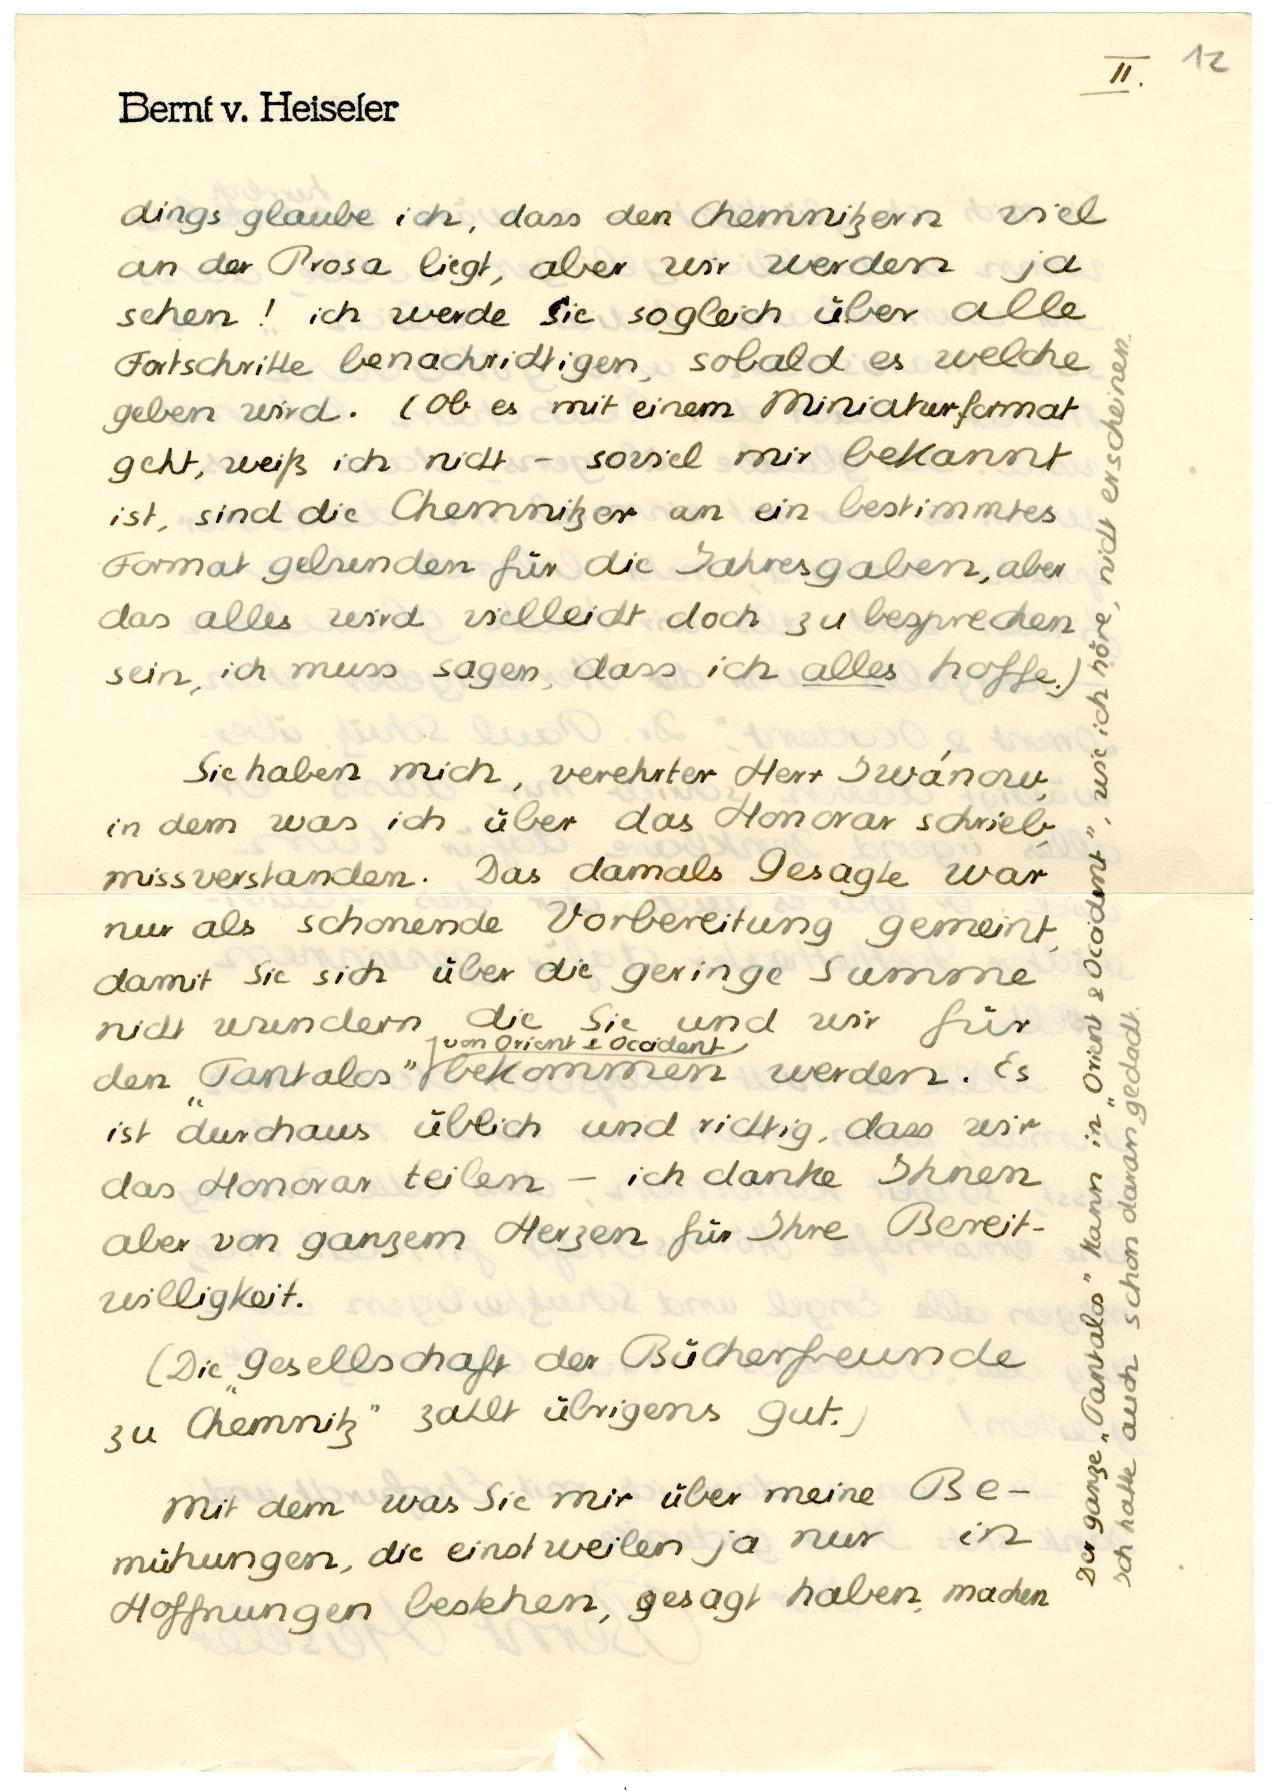 12
II.
Bernt v. Heiseler
dings glaube ich, dass den Chemnitzern viel
an der Prosa liegt, aber wir werden ja
sehen! ich werde Sie sogleich über alle
Fortschritte benachrichtigen, sobald es welche
geben wird. (Ob es mit einem Miniaturformat
geht, weiß ich nicht – soviel mir bekannt
ist, sind die Chemnitzer an ein bestimmtes
Format gebunden für die Jahresgaben, aber
das alles wird vielleicht doch zu besprechen
sein, ich muss sagen, dass ich alles hoffe.)
Sie haben mich, verehrter Herr Iwánow,
in dem was ich über das Honorar schrieb,
missverstanden. Das damals Gesagte war
nur als schonende Vorbereitung gemeint,
damit Sie sich über die geringe Summe
nicht wundern, die Sie und wir für
von Orient & Occident
den „Tantalos“ bekommen werden. Es
ist durchaus üblich und richtig, dass wir
das Honorar teilen – ich danke Ihnen
aber von ganzem Herzen für Ihre Bereit-
willigkeit.
(Die „Gesellschaft der Bücherfreunde
zu Chemnitz“ zahlt übrigens gut.)
Mit dem was Sie mir über meine Be-
mühungen, die einstweilen ja nur in
Hoffnungen bestehen, gesagt haben, machen
Der ganze „Tantalos“ kann in „Orient & Occident“, wie ich höre, nicht erscheinen.
Ich hatte auch schon daran gedacht.